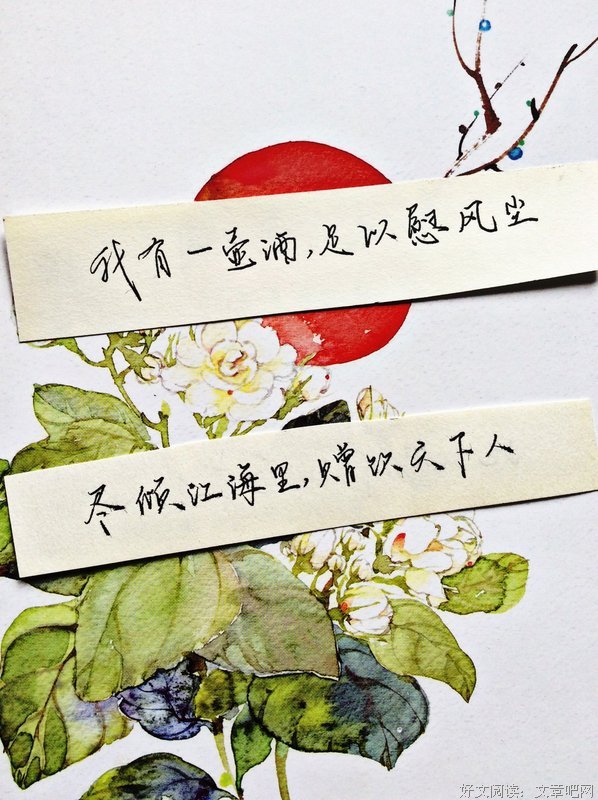 我有一壶酒,足以慰风尘
尽倾江海里,赠饮天下人
好文阅读：文章吧网